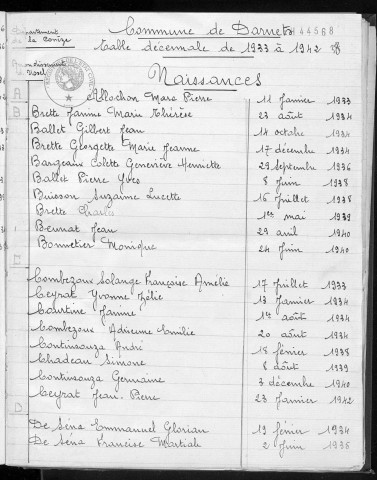 Département de la Corrèze
Commune de Darnets
144568
Table décennale de 1933 à 1942
Naissances
A
Allochon Marc Pierre 11 Janvier 1933
B
Brette Jeanne Marie Thérèse 23 août 1934
Ballet Gilbert Jean 14 octobre 1934
Brette Georgette Marie Jeanne 17 décembre 1934
Bargeaux Colette Geneviève Henriette 29 septembre 1936
Ballet Pierre Yves 8 Juin 1938
Buisson Suzanne Lucette 15 Juillet 1938
Brette Charles 1er mai 1939
Beunat Jean 29 avril 1940
Bonnetier Monique 24 Juin 1940
Combezoux Solange Françoise Amélie 17 Juillet 1933
Ceyrat Yvonne Zélie 13 Janvier 1934
Courtine Jeanne 1er août 1934
Combezoux Adrienne Emilie 20 août 1934
Continsouza André 15 février 1938
Chadeau Simone 8 août 1939
Continsouza Germaine 3 décembre 1940
Ceyrat Jean-Pierre 23 Janvier 1942
D
De Séna Emmanuel Glorian 19 février 1934
De Séna Francisc Martial 2 Juin 1936